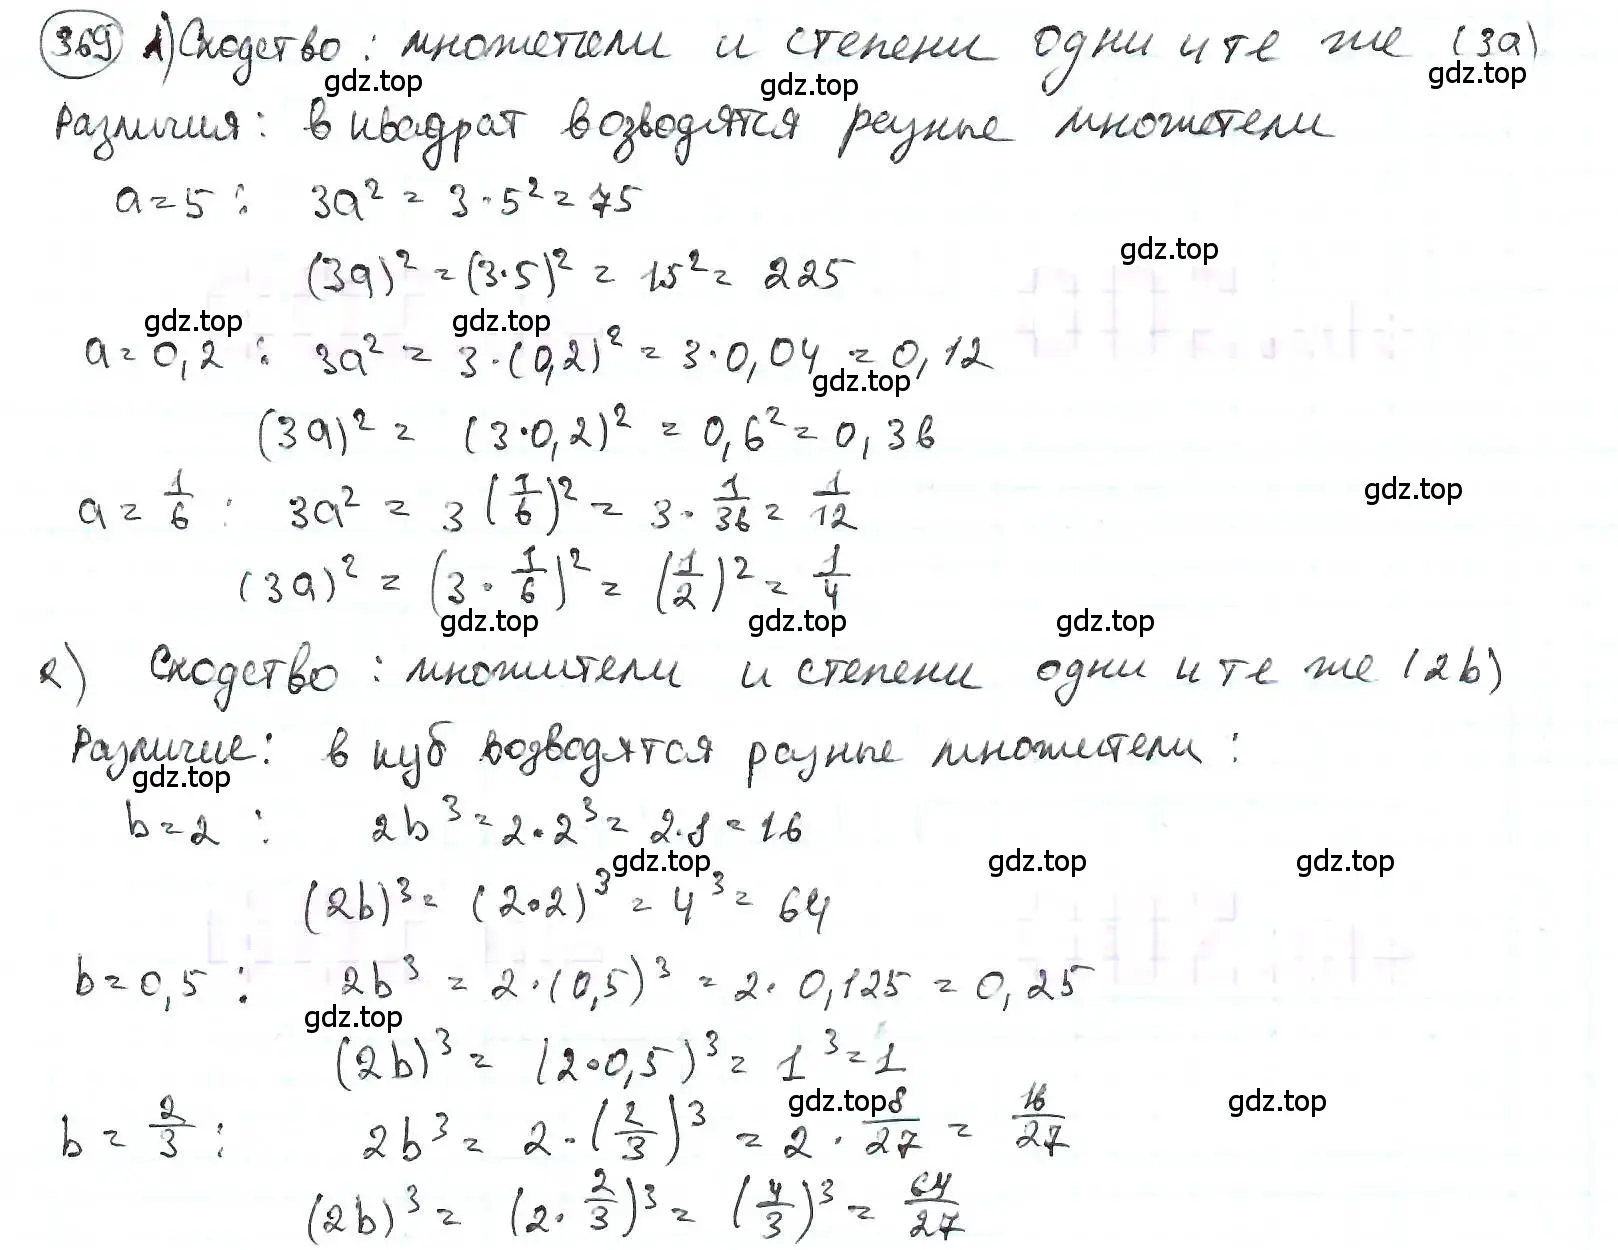 369 1) Сходство: множетели и степени одни и те же (3a)
gdz.top gdz.top gdz.top
Различия: в квадрат возводятся разные множетели
a = 5 : 3a² = 3·5² = 75
gdz.top
(3a)² = (3·5)² = 15² = 225
gdz.top gdz.top
a = 0,2 : 3a² = 3·(0,2)² = 3·0,04 = 0,12
gdz.top
(3a)² = (3·0,2)² = 0,6² = 0,36
gdz.top
a = 1/6 : 3a² = 3(1/6)² = 3·1/36 = 1/12
(3a)² = (3·1/6)² = (1/2)² = 1/4
gdz.top gdz.top gdz.top
2) Сходство: множители и степени одни и те же (2b)
Различие: в куб возводятся разные множители:
gdz.top
b = 2 : 2b³ = 2·2³ = 2·8 = 16
gdz.top gdz.top gdz.top
(2b)³ = (2·2)³ = 4³ = 64
b = 0,5 : 2b³ = 2·(0,5)³ = 2·0,125 = 0,25
gdz.top
(2b)³ = (2·0,5)³ = 1³ = 1
gdz.top gdz.top
b = 2/3 : 2b³ = 2·(2/3)³ = 2·8/27 = 16/27
(2b)³ = (2·2/3)³ = (4/3)³ = 64/27